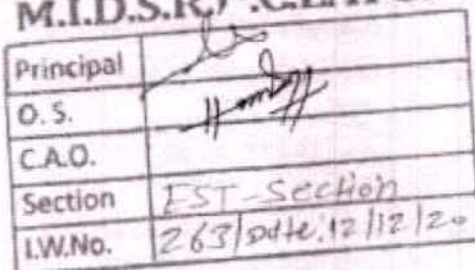 M.I.D.S.R.
Principal
O. S.
C.A.O.
Section EST-Section
I.W.No. 263/Date:12/12/20